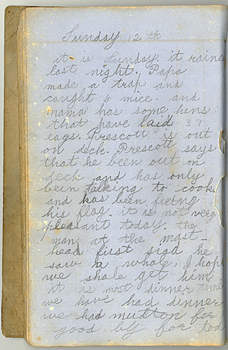 Sunday 12th
it is sunday it rained
last night. Papa
made a trap and
caught 2 mice. and
mama has some hens
that have laid 37
eags. Prescott is out
on deck. Prescott says
that he been out on
deck and has only
been talking to cook
and has been fixing
his flag. it is not very
pleasant today. the
man at the mast
head first sigd he
saw a whale. I hope
we shale get him
it is most dinner time
we have had dinner
we had mutton for
good by for tod